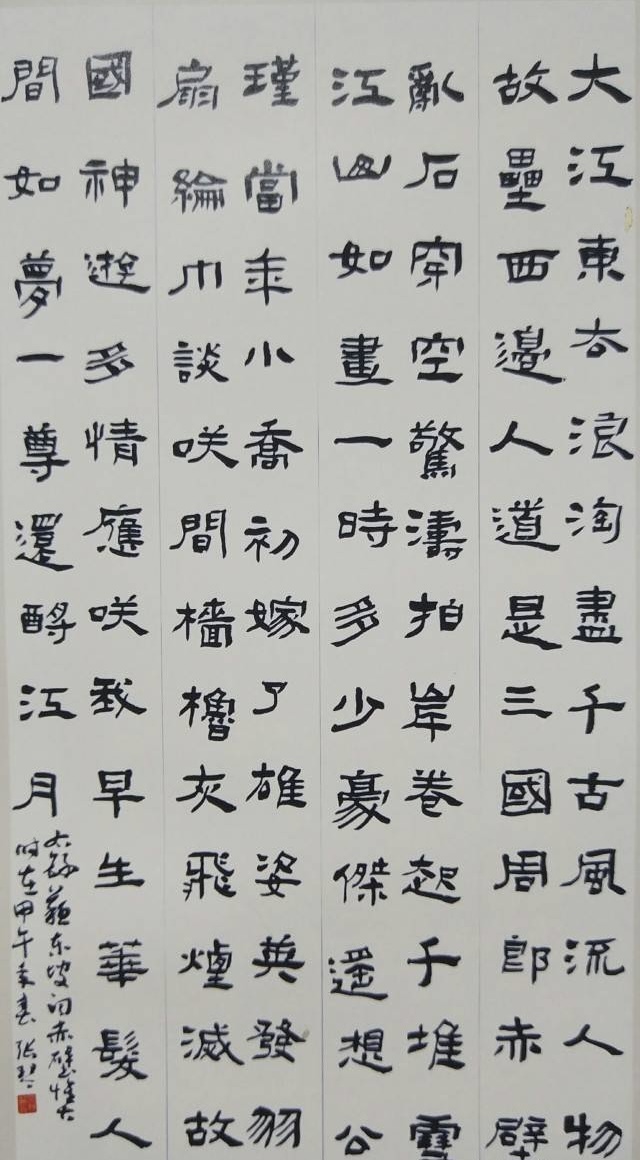 大江東去浪淘盡千古風流人物
故壘西邊人道是三國周郎赤壁
亂石穿空驚濤拍岸卷起千堆雪
江山如畫一時多少豪傑遥想公
瑾當年小喬初嫁了雄姿英發羽
扇綸巾談咲間檣櫓灰飛煙滅故
國神遊多情應咲我早生華髮人
間如夢一尊還酹江月
右錄蘇東坡詞赤壁懷古
時在甲午春張